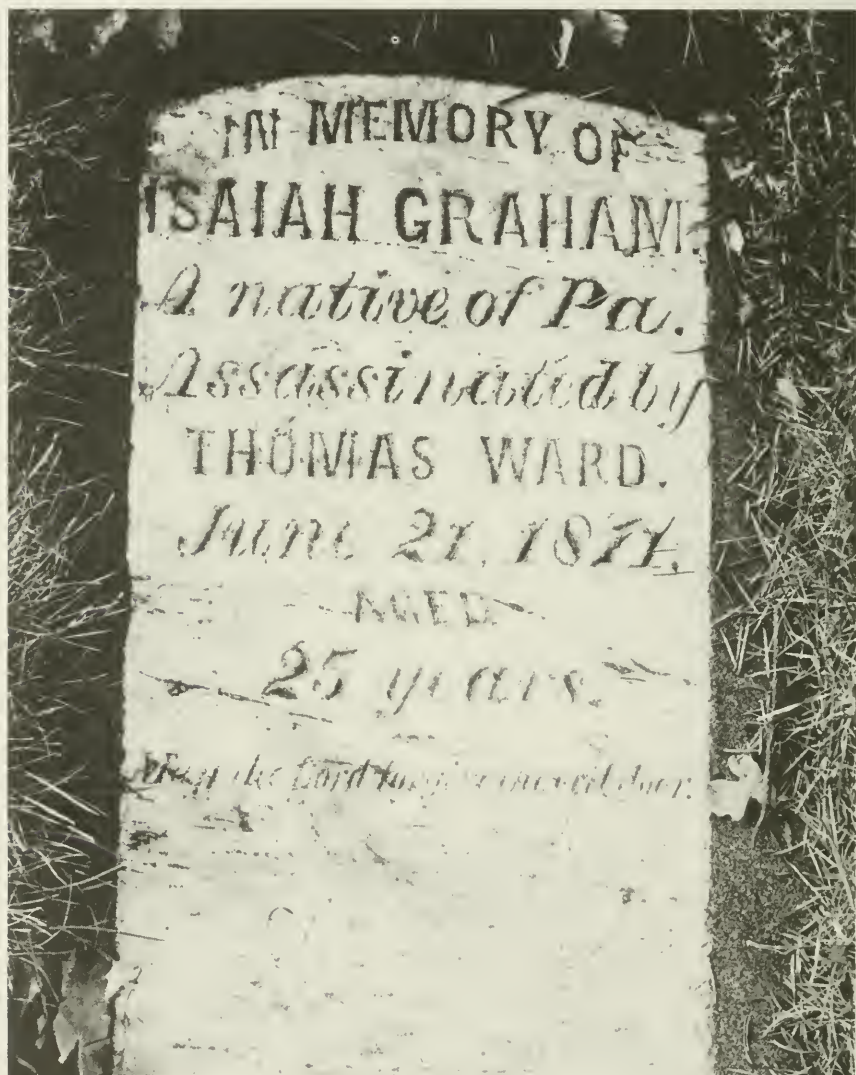 IN MEMORY OF
ISAIAH GRAHAM.
A native of Pa.
Assassinated by
THOMAS WARD.
June 21, 1871.
AGED
25 years.
May the Lord evil doer.